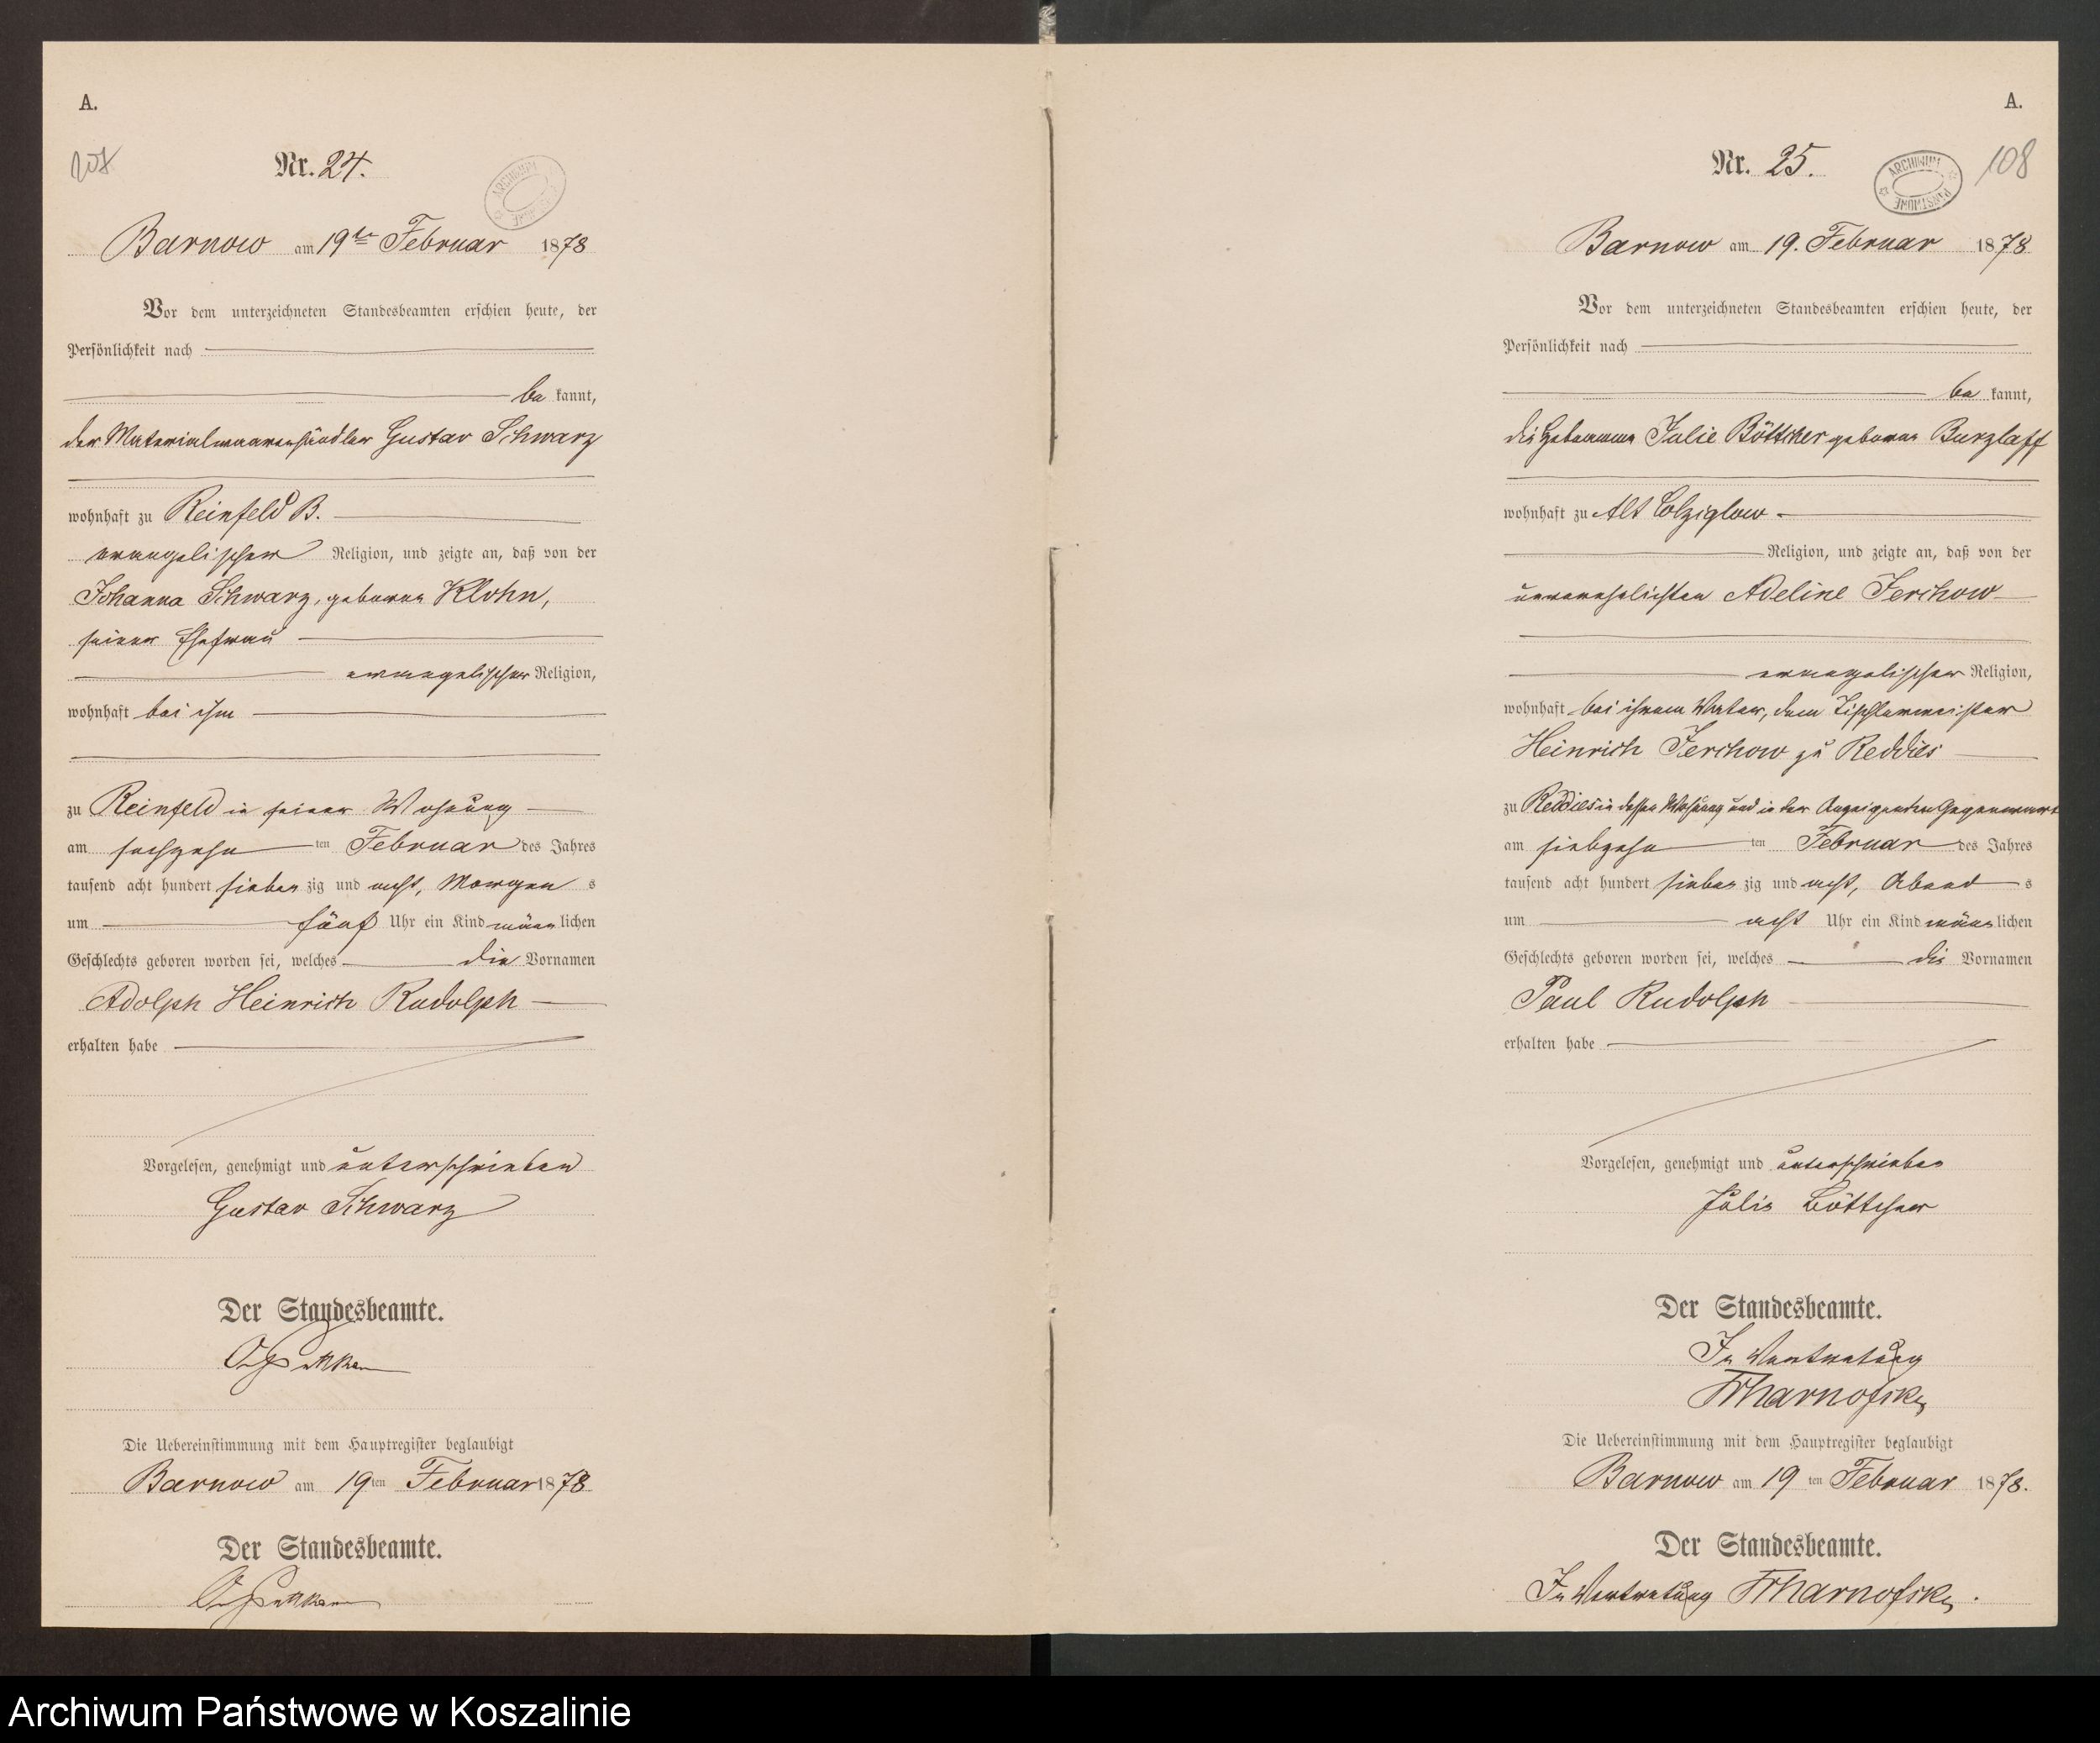 A.
Nr. 24.
ARCHIWUM PAŃSTWOWE
Barnow am 19ten Februar 1878
Vor dem unterzeichneten Standesbeamten erschien heute, der
Persönlichkeit nach
be kannt,
der Materialwaarenhändler Gustav Schwarz
wohnhaft zu Reinfeld B.
evangelischer Religion, und zeigte an, daß von der
Johanna Schwarz, geborene Klohn,
seiner Ehefrau
evangelischer Religion,
wohnhaft bei ihm
zu Reinfeld in seiner Wohnung
am sechzehn ten Februar des Jahres
tausend acht hundert sieben zig und acht, Morgen s
um fünf Uhr ein Kind männ lichen
Geschlechts geboren worden sei, welches die Vornamen
Adolph Heinrich Rudolph
erhalten habe
Vorgelesen, genehmigt und unterschrieben
Gustav Schwarz
Der Standesbeamte.
Die Uebereinstimmung mit dem Hauptregister beglaubigt
Barnow am 19 ten Februar 1878
Der Standesbeamte.
A.
Nr. 25.
ARCHIWUM PAŃSTWOWE
108
Barnow am 19. Februar 1878
Vor dem unterzeichneten Standesbeamten erschien heute, der
Persönlichkeit nach
be kannt,
die Hebamme Julie Böttcher geborene Burzlaff
wohnhaft zu Alt Colziglow
Religion, und zeigte an, daß von der
unverehelichten Adeline Jerchow
evangelischer Religion,
wohnhaft bei ihrem Vater, dem Tischlermeister
Heinrich Jerchow zu Reddies
zu Reddies in dessen Wohnung und in der Anzeigenden Gegenwart
am siebzehn ten Februar des Jahres
tausend acht hundert sieben zig und acht, Abend s
um acht Uhr ein Kind männ lichen
Geschlechts geboren worden sei, welches die Vornamen
Paul Rudolph
erhalten habe
Vorgelesen, genehmigt und unterschrieben
Julie Böttcher
Der Standesbeamte.
In Vertretung
Die Uebereinstimmung mit dem Hauptregister beglaubigt
Barnow am 19 ten Februar 1878.
Der Standesbeamte.
In Vertretung
Archiwum Państwowe w Koszalinie